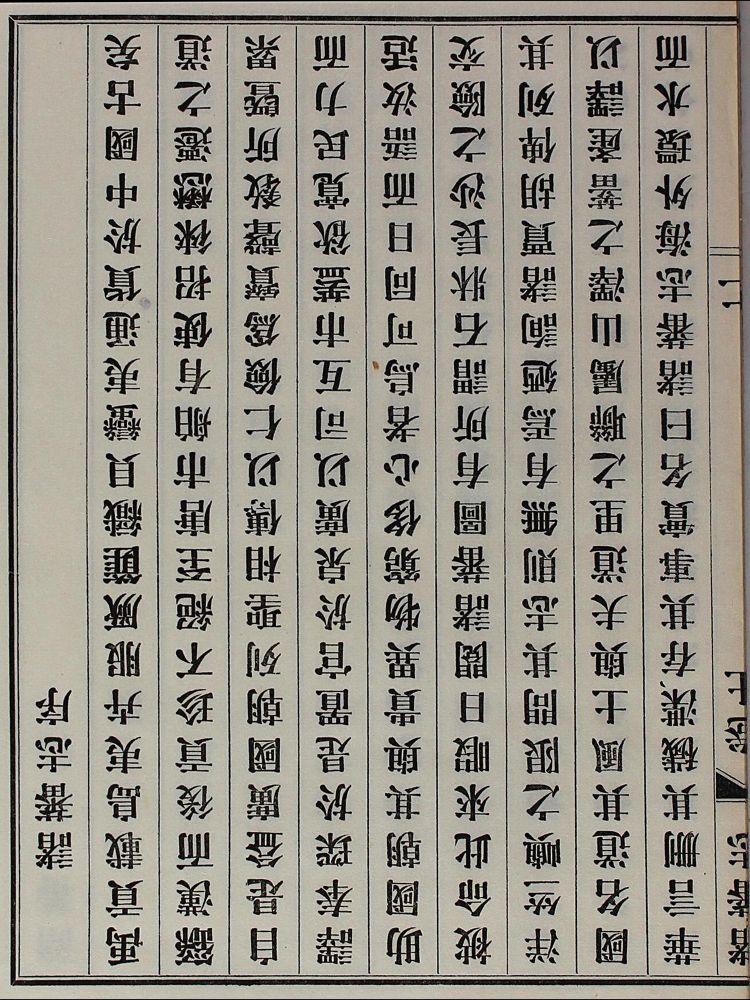 諸蕃志序
禹貢載島夷卉服厥篚織貝蠻夷通貨於中國古矣
繇漢而後貢珍不絕至唐市舶有使招徠懋遷之道
自是益廣國朝列聖相傳以仁儉爲寶聲教所暨累
譯奉琛於是置官於泉廣以司互市蓋欲寬民力而
助國朝其與貴異物窮侈心者烏可同日而語汝适
被命此來暇日閱諸蕃圖有所謂石牀長沙之險交
洋竺嶼之限問其志則無有焉廼詢諸賈胡俾列其
國名道其風土與夫道里之聯屬山澤之蓄產譯以
華言刪其穢渫存其事實名曰諸蕃志海外環水而
諸蕃志 卷上